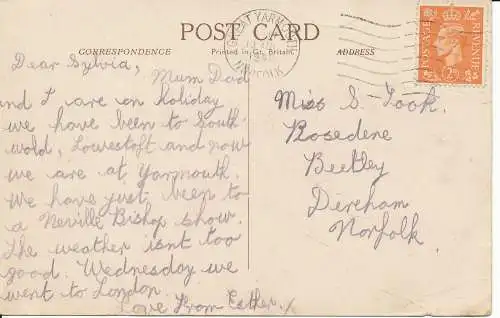 POST CARD
CORRESPONDENCE
Printed in Gt. Britain.
ADDRESS
GREAT YARMOUTH
NORFOLK
POSTAGE
REVENUE
Dear Sylvia,
Mum Dad
and I are on holiday
we have been to South-
wold, Lowestoft and now
we are at Yarmouth.
We have just been to
a Neville Bishop show.
The weather isnt too
good. Wednesday we
went to London.
Love From Esther. x
Miss S. Took.
Rosedene
Beetley
Dereham
Norfolk.